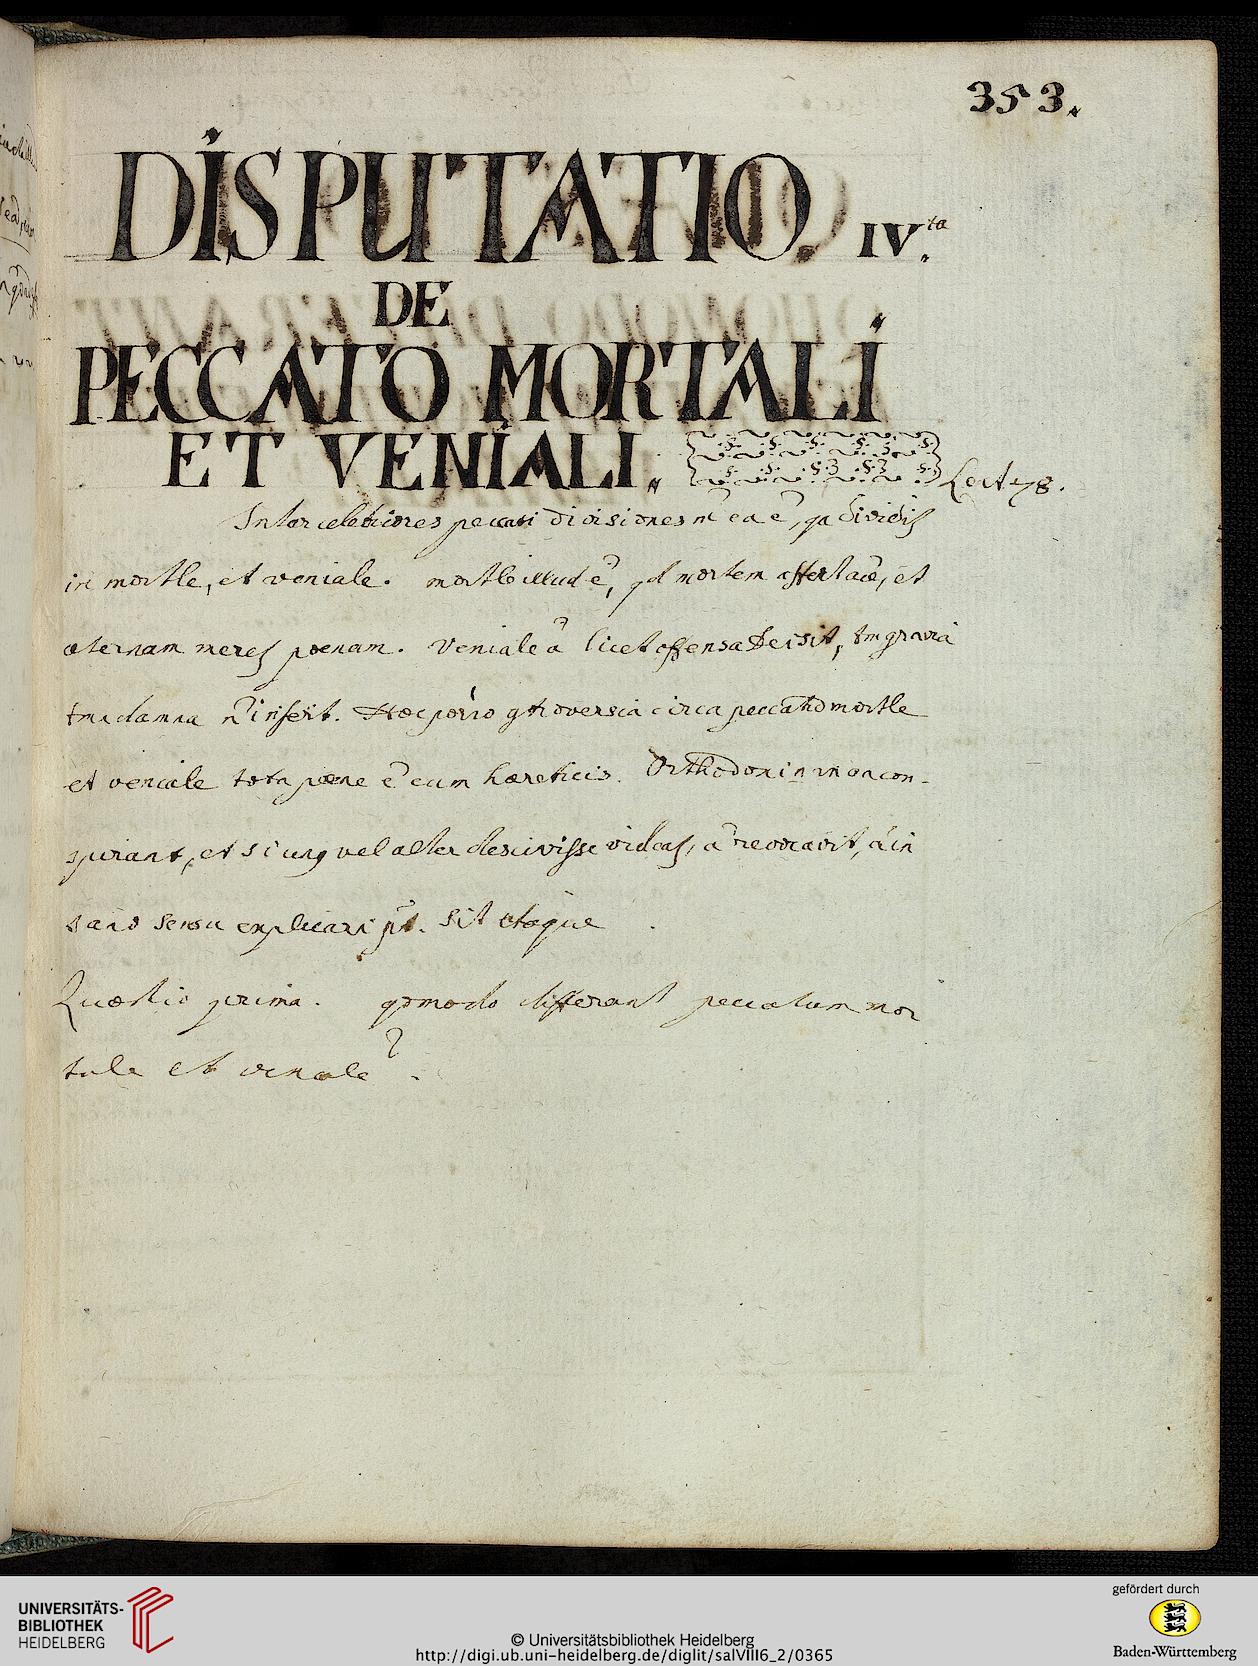 353.
DISPUTATIO IV.ta
DE
PECCATO MORTALI
ET VENIALI.
Lect 78.
Inter celebriores peccati divisiones ea ẽ, qa dividiſ
in mortle, et veniale. mortle illud ẽ, qd mortem affert aiæ, et
æternam mereſ poenam. Veniale a licet offensa Dei sit, tm gravia
damna ñ infert. Hæc porro controversia circa peccatũ mortle
et veniale tota pæne ẽ cum hæreticis. Orthodoxi in unum con-
spirant, et si unq vel alter descivisse videaſ, a revocavit, a in
sano sensu explicari pñt. Sit itaque
Quæstio prima. qomodo differant peccatum mor
tale et veniale?
UNIVERSITÄTS-
BIBLIOTHEK
HEIDELBERG
© Universitätsbibliothek Heidelberg
http://digi.ub.uni-heidelberg.de/diglit/salVIII6_2/0365
gefördert durch
Baden-Württemberg